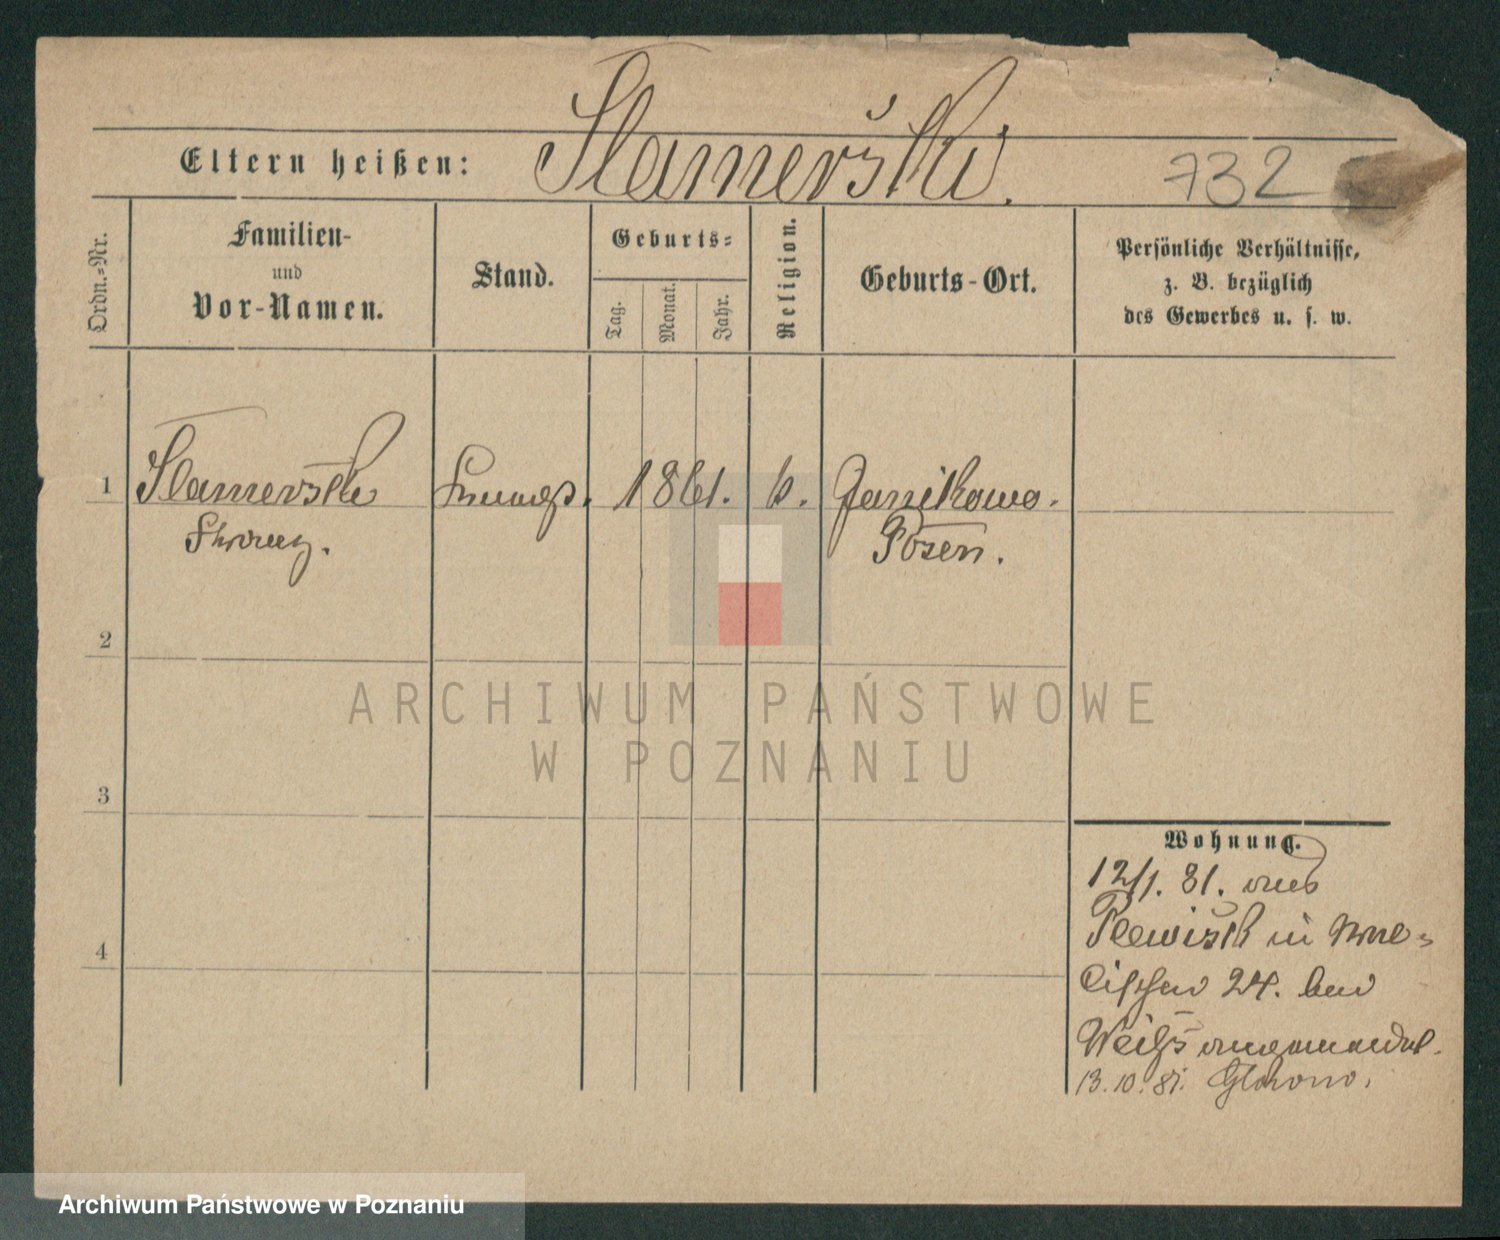 Eltern heißen: Slamerski. 732
Ordn.=Nr.
Familien-
und
Vor-Namen.
Stand.
Geburts=
Tag.
Monat.
Jahr.
Religion.
Geburts-Ort.
Persönliche Verhältnisse,
z. B. bezüglich
des Gewerbes u. s. w.
1 Slamerski 1861. k. Janikowo.
Franz. Posen.
2
3
4
Wohnung.
12/1. 81. aus
Plewisk in
24. bei
Weiß
13.10.81.
ARCHIWUM PAŃSTWOWE
W POZNANIU
Archiwum Państwowe w Poznaniu